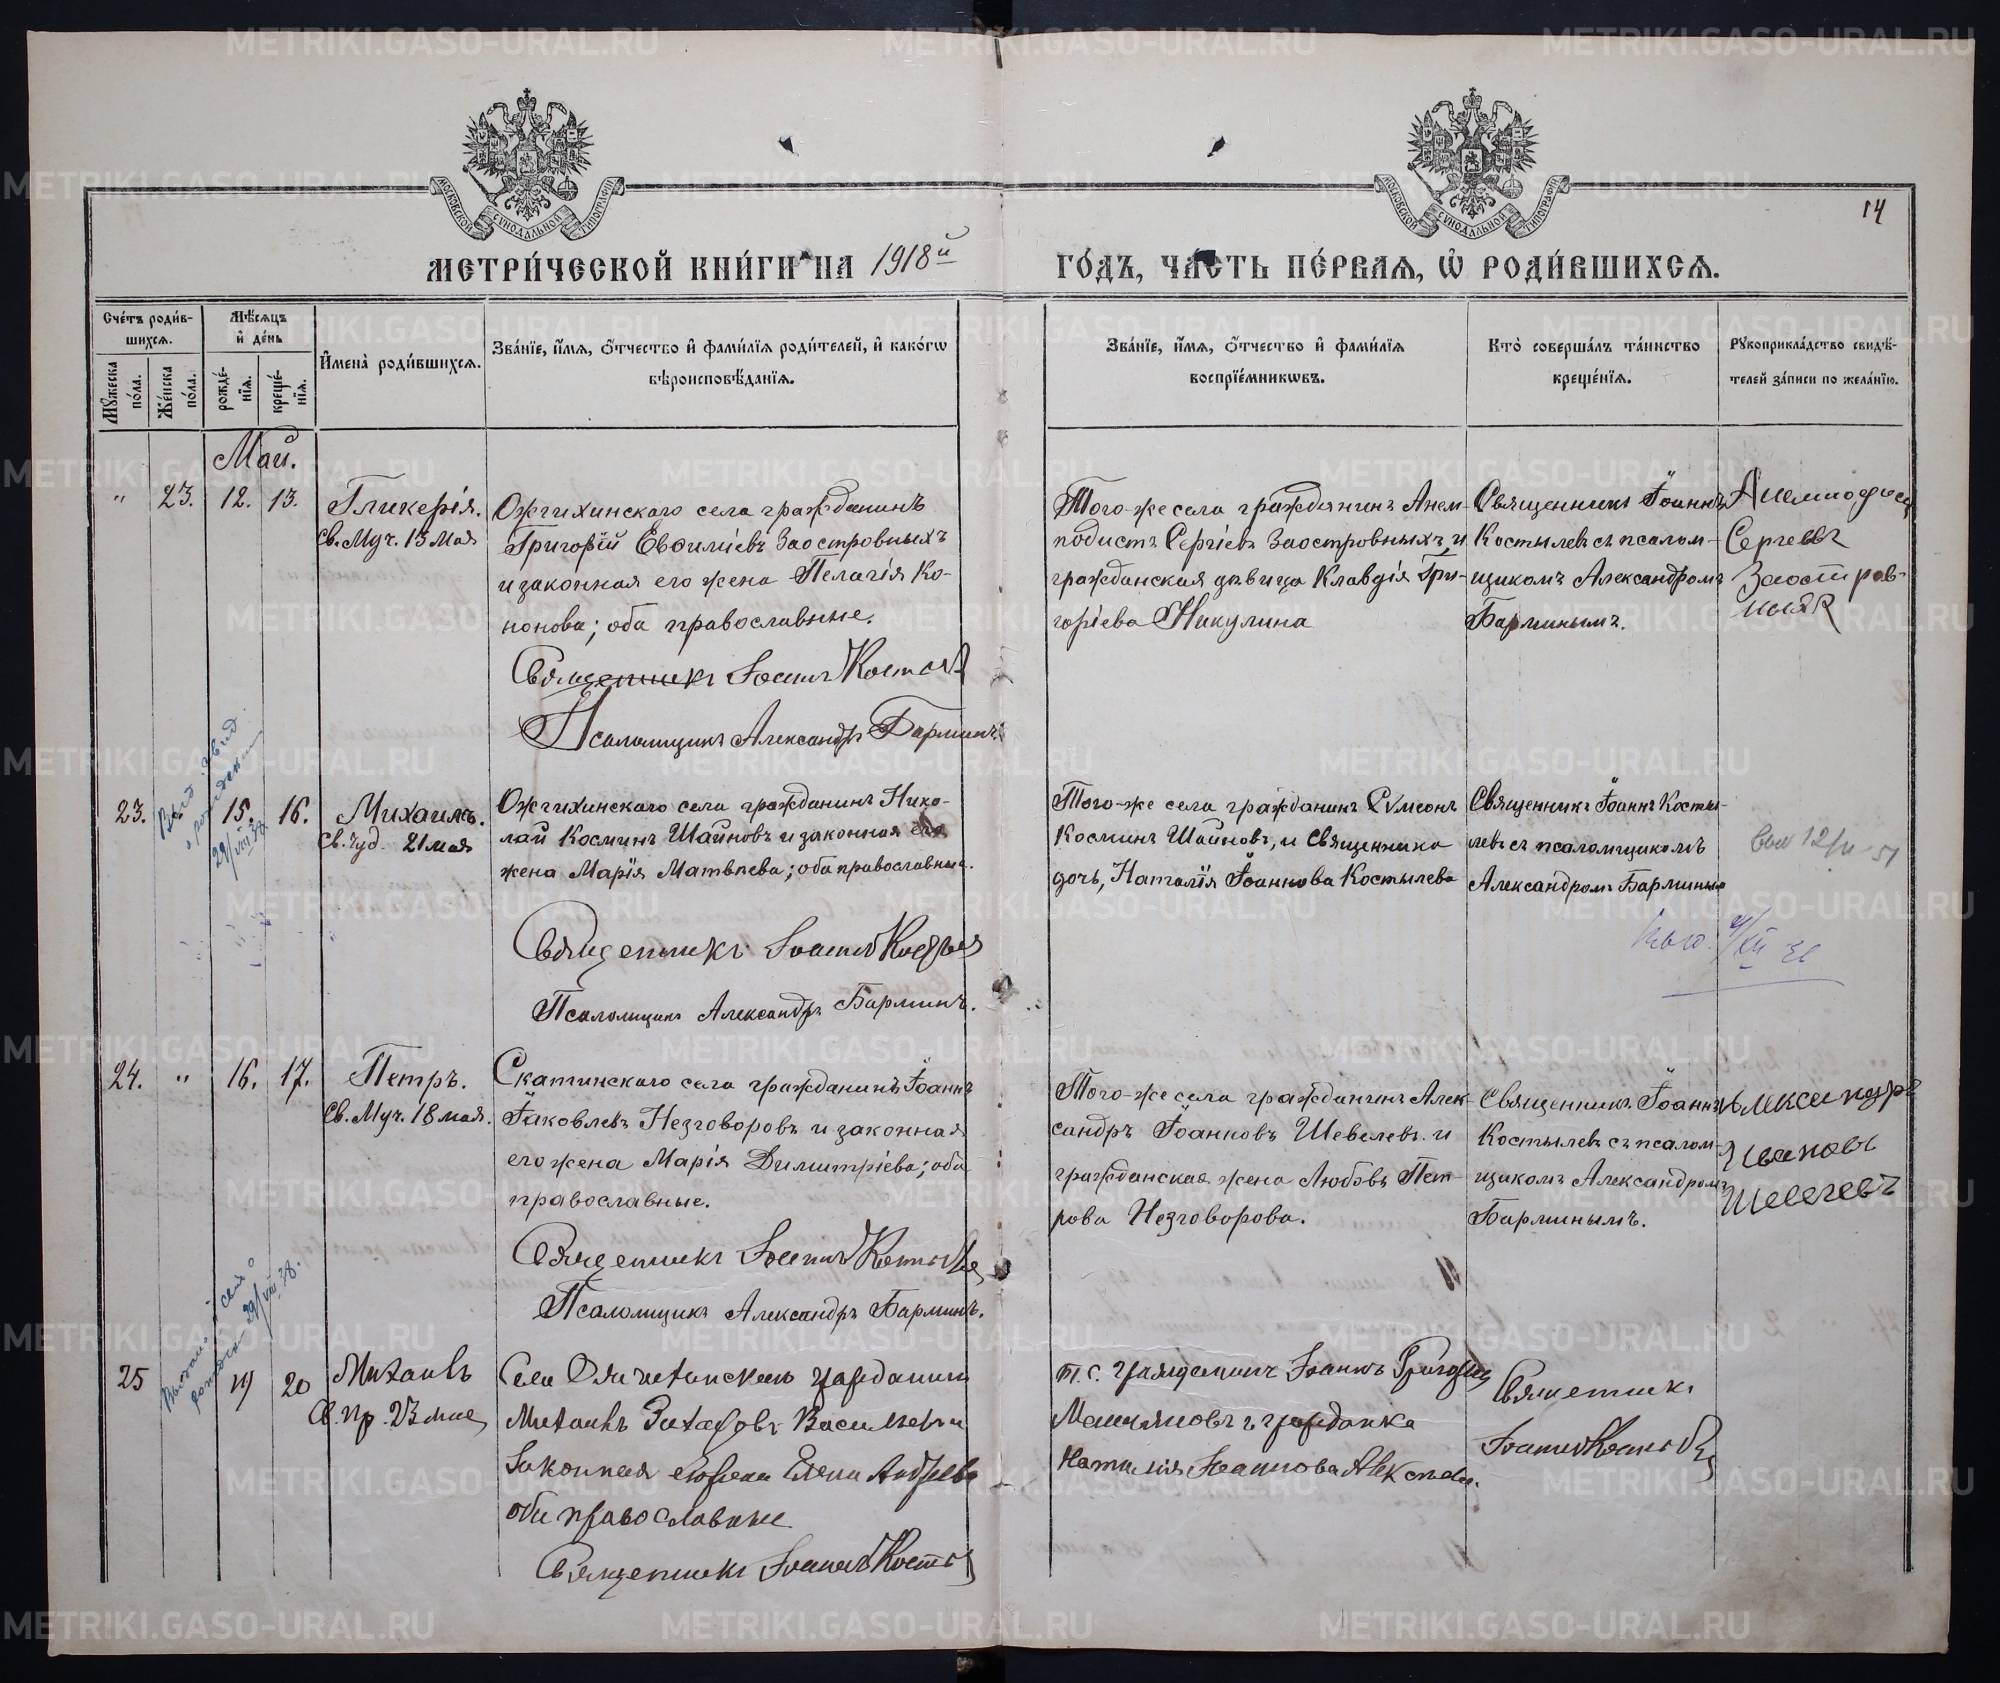 МОСКОВСКОЙ СѴНОДАЛЬНОЙ ТИПОГРАФІИ
МОСКОВСКОЙ СѴНОДАЛЬНОЙ ТИПОГРАФІИ
14
МЕТРИ́ЧЕСКОЙ КНИ́ГИ НА 1918й
ГО́ДЪ, ЧА́СТЬ ПЕ́РВАѦ, Ѡ҆ РОДИ́ВШИХСѦ.
Сче́тъ роди́в-
шихсѧ.
Мꙋ́жеска по́ла.
Же́нска по́ла.
Мѣ́сѧцъ
и҆ де́нь
рожде́-
нїѧ.
креще́-
нїѧ.
И҆мена̀ роди́вшихсѧ.
Зва́нїе, и҆́мѧ, ѻ҆́тчество и҆ фами́лїѧ роди́телей, и҆ како́гѡ
вѣроисповѣ́данїѧ.
Зва́нїе, и҆́мѧ, ѻ҆́тчество и҆ фами́лїѧ
воспрїе́мникѡвъ.
Кто̀ соверша́лъ та́инство
креще́нїѧ.
Рꙋкоприкла́дство свидѣ́-
телей за́писи по жела́нїю.
Май.
" 23. 12. 13.
Гликерія.
Св. Муч. 13 мая
Ожгихинскаго села гражданинъ
Григорій Евѳиміевъ Заостровныхъ
и законная его жена Пелагія Ко-
нонова; оба православные.
Священникъ Іоаннъ Костылев
Псаломщикъ Александръ Барминъ
Того-же села гражданинъ Анем-
подистъ Сергіевъ Заостровныхъ, и
гражданская дѣвица Клавдія Гри-
горіева Никулина
Священникъ Іоаннъ
Костылевъ съ псалом-
щикомъ Александромъ
Барминымъ.
Сергеевъ
Заостров-
ныхъ
23. 15. 16.
Выд. свид.
о рождении
29/VIII 38
Михаилъ.
Св. Чуд. 21 мая
Ожгихинскаго села гражданинъ Нико-
лай Косминъ Шаиновъ и законная его
жена Марія Матвѣева; оба православные.
Священникъ Іоаннъ Костылев
Псаломщикъ Александръ Барминъ.
Того-же села гражданинъ Сѵмеонъ
Косминъ Шаиновъ, и Священника
дочь, Наталія Іоаннова Костылева
Священникъ Іоаннъ Косты-
левъ съ псаломщикомъ
Александромъ Барминымъ
24. " 16. 17.
Петръ.
Св. Муч. 18 мая.
Скатинскаго села гражданинъ Іоаннъ
Іаковлевъ Незговоровъ и законная
его жена Марія Димитріева; оба
православные.
Священникъ Іоаннъ Костылев
Псаломщикъ Александръ Барминъ.
Того-же села гражданинъ Алек-
сандръ Іоанновъ Шевелевъ и
гражданская жена Любовь Пет-
рова Незговорова.
Священникъ Іоаннъ
Костылевъ съ псалом-
щикомъ Александромъ
Барминымъ.
Александръ
Ивановъ
Шевелевъ
25 19 20
29/VIII 38.
Михаилъ
Св. Пр. 23 мая
Михаилъ Захаровъ Васильевъ и
Законная его жена Елена Андреева
оба православные
Священникъ Іоаннъ Костылев
т. с. гражданинъ Іоаннъ Григорьев
гражданка
Наталия Іоаннова
Священникъ
Іоаннъ Костылев